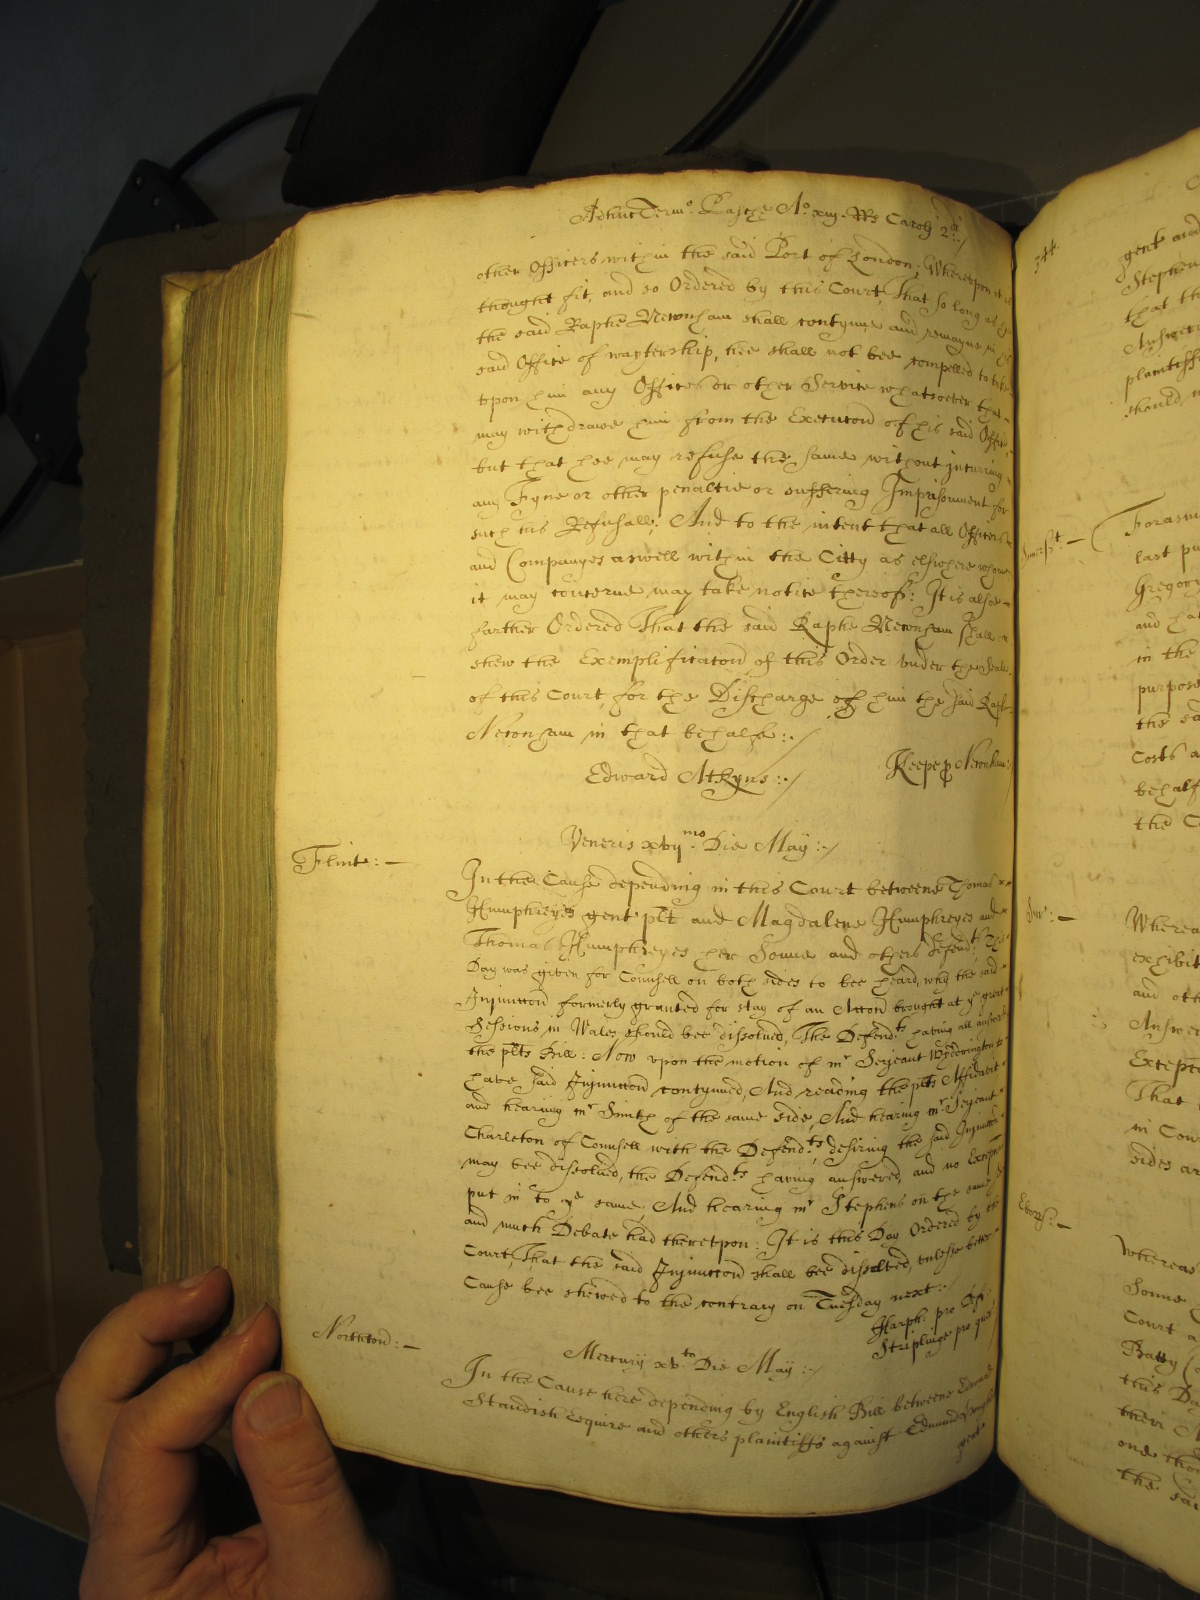 Adhuc Termo. Pasche Ao. xiij. R Rs Caroli 2di:/
other Officers within the said Port of London; Whereupon it is
thought fit, and so Ordered by this Court, That so long as
the said Raphe Newnham shall contynue and remayne in
said Office of waytership, hee shall not bee compelled to take
upon him any Offices or other Service whatsoever that
may withdrawe him from the Execucon of his said Office
but that hee may refuse the same without incurring
any Fyne or other penaltie or suffering Imprisonment for
such his Refusall; And to the intent that all Officers
and Companyes aswell within the Citty as elswhere whome
it may concerne may take notice thereof: It is alsoe
farther Ordered That the said Raphe Newnham shall
shew the Exemplificacon of this Order under the Seale
of this Court, for the Discharge of him the said Raphe
Newnham in that behalfe:/
Edward Atkyns:/
Keepe p Newnham:/
Veneris xvijmo. Die May:/
Flint:
In the Cause depending in this Court betweene Thomas
Humphreyes gent plt and Magdalene Humphreyes and
Thomas Humphreyes her Sonne and others defendts. This
Day was given for Counsell on both sides to bee heard, why the said
Injunccon formerly granted for stay of an Accon brought at ye great
Sessions in Wales should bee dissolved, The Defendts having all answered
the plts Bill: Now upon the motion of mr Serjeant Wyddrington to
have said Injunccon contynued, And reading the plts Affidavit
and hearing mr Smith of the same side, And hearing mr Serjeant
Charleton of Counsell with the Defendts. desiring the said Injunccon
may bee dissolved, the Defendts having answered, and no Excepcon
put in to ye same, And hearing mr Stephens on the same
and much Debate had thereupon: It is this Day Ordered by the
Court, That the said Injunccon shall bee dissolved, unlesse better
Cause bee shewed to the contrary on Tuesday next:
Harph: pro Def:
Striplinge pro quer
Northton:
Mercury xvto. Die May:/
In the Cause here depending by English Bill betweene Edward
Standish Esquire and others plaintiffs against Edmund
gent
344.
gent and
Stephen
that th
Answer
plaintiff
should
Somersett:
Forasm
last pu
Gregor
and ha
in the
purpose
the sa
Costs a
behalf
the C
Surr:
Wherea
exhibit
and oth
Answer
Except
That
in Cou
sides ar
Ebors:
Whereas
Sonne
Court a
Batty
this Da
their
one tho
the sai